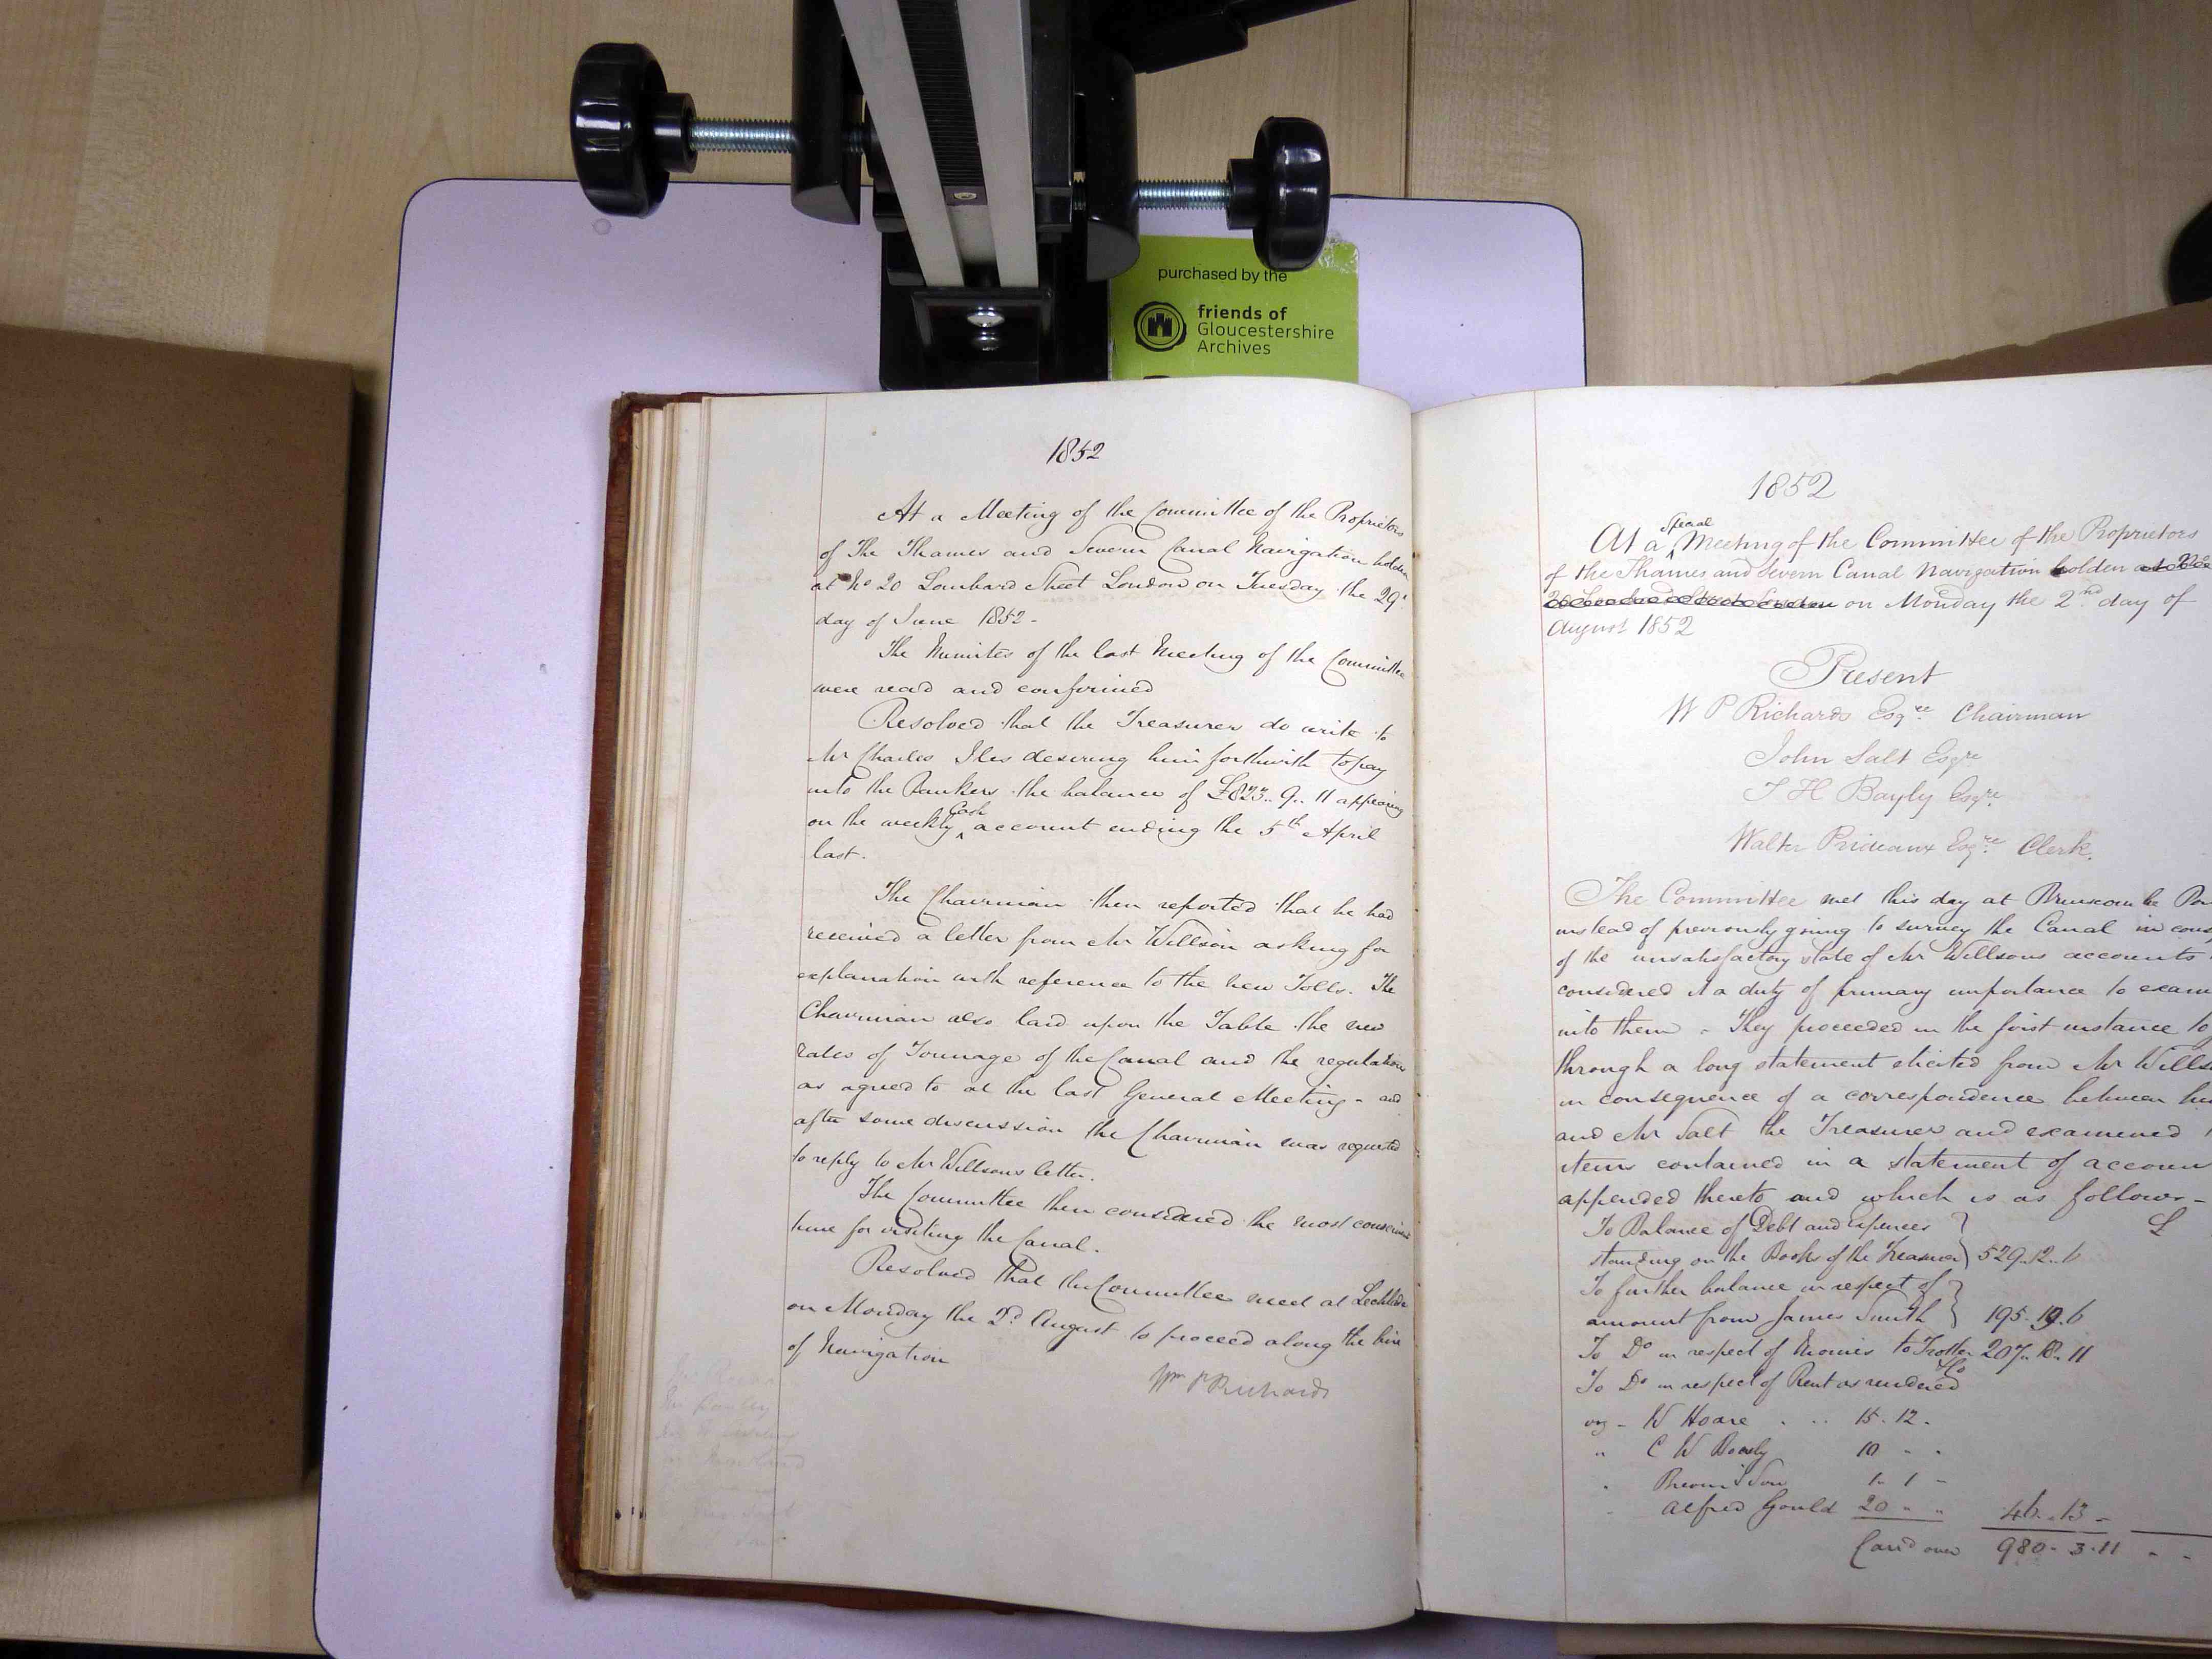 purchased by the
friends of
Gloucestershire
Archives
1852
At a Meeting of the Committee of the Proprietors
of The Thames and Severn Canal Navigation holden
at No 20 Lombard Street London on Tuesday the 29th
day of June 1852-
The Minutes of the last Meeting of the Committee
were read and confirmed
Resolved that the Treasurer do write to
Mr Charles Iles desiring him forthwith to pay
into the Bankers the balance of £823.. 9.. 11 appearing
on the weekly Cash account ending the 5th April
last.
The Chairman then reported that he had
received a letter from Mr Willson asking for
explanation with reference to the new Tolls. The
Chairman also laid upon the Table the new
rates of Tonnage of the Canal and the regulations
as agreed to at the last General Meeting - and
after some discussion the Chairman was requested
to reply to Mr Willsons letter.
The Committee then considered the most convenient
time for visiting the Canal.
Resolved that the Committee meet at Lechlade
on Monday the 2d August to proceed along the line
of Navigation
Wm P Richards
1852
At a Special Meeting of the Committee of the Proprietors
of the Thames and Severn Canal Navigation holden at No
20 Lombard Street London on Monday the 2nd day of
August 1852
Present
W P Richards Esqre Chairman
John Salt Esqre
T H Bayly Esqre
Walter Prideaux Esqre Clerk.
The Committee met this day at Brimscombe Por
instead of previously going to survey the Canal in cons
of the unsatisfactory state of Mr Willsons accounts
considered it a duty of primary importance to exam
into them - They proceeded in the first instance to g
through a long statement elicited from Mr Wills
in consequence of a correspondence between hi
and Mr Salt the Treasurer and examined
items contained in a statement of accoun
appended thereto and which is as follows -
To Balance of Debt and Expences £
standing on the Books of the Treasurer 529..12..6
To further balance in respect of
amount from James Smith 195.19.6
To Do in respect of Monies to Trotter 207.18.11
To Do in respect of Rent as rendered
viz - W Hoare . .. 15.12.
" C W Beasly 10 - .
Brown & Son 1. 1 -
Alfred Gould 20 " " 46..13 -
Card over 980.3.11 - -